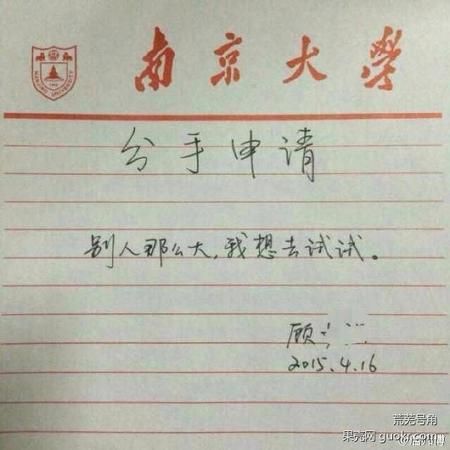 南京大學
NANJING UNIVERSITY
分手申请
别人那么大，我想去试试。
顾
2015.4.16
荒芜号角
果壳网 guokr.com